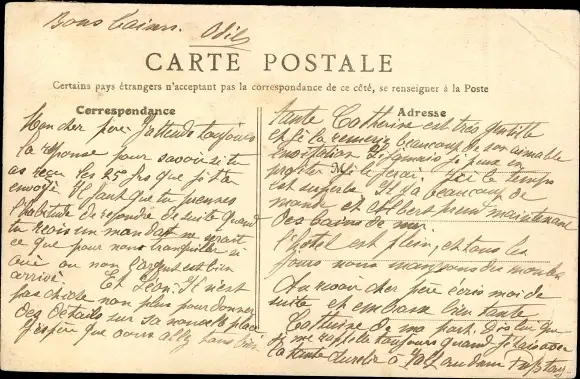 Bons baisers. Odile
CARTE POSTALE
Certains pays étrangers n'acceptant pas la correspondance de ce côté, se renseigner à la Poste
Correspondance
Mon cher père J'attends toujours
la réponse pour savoir si tu
as reçu les 25 frs que je t'ai
envoyé Il faut que tu prennes
l'habitude de répondre de suite quand
tu reçois un mandat ne serait
ce que pour nous tranquiliser si
oui ou non l'argent est bien
arrivé. Et Léon. Il n'est
pas chiche non plus pour donner
des détails sur sa nouvelle place
J'espère que vous allez tous bien
Adresse
tante Catherine est très gentille
et je la remercie beaucoup de son aimable
invitation Si jamais je puis en
profiter je le ferai. Ici le temps
est superbe Il y a beaucoup de
monde et Albert prend maintenant
des bains de mer.
l'hôtel est plein, et tous les
jours nous
Au revoir cher père écris moi de
suite et embrasse bien tante
Catherine de ma part. Dis lui que
je me rappelle toujours quand j'étais avec
la tante Aurélie à